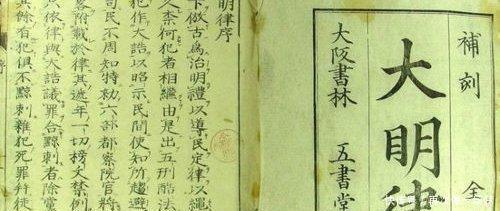 補刻
大明律
全
大阪書林 五書堂
明律序
下倣古為治明禮以導民定律以繩
久奈何犯者相繼由是出五刑酷法
犯作大誥以昭示民間使知所趨避
司民不周知特勅六部都察院官將
畧附載於律其遞年一切榜文禁例
依律與大誥議罪合黥刺者除黨
其餘有犯俱不黥刺雜犯死罪并徒
序